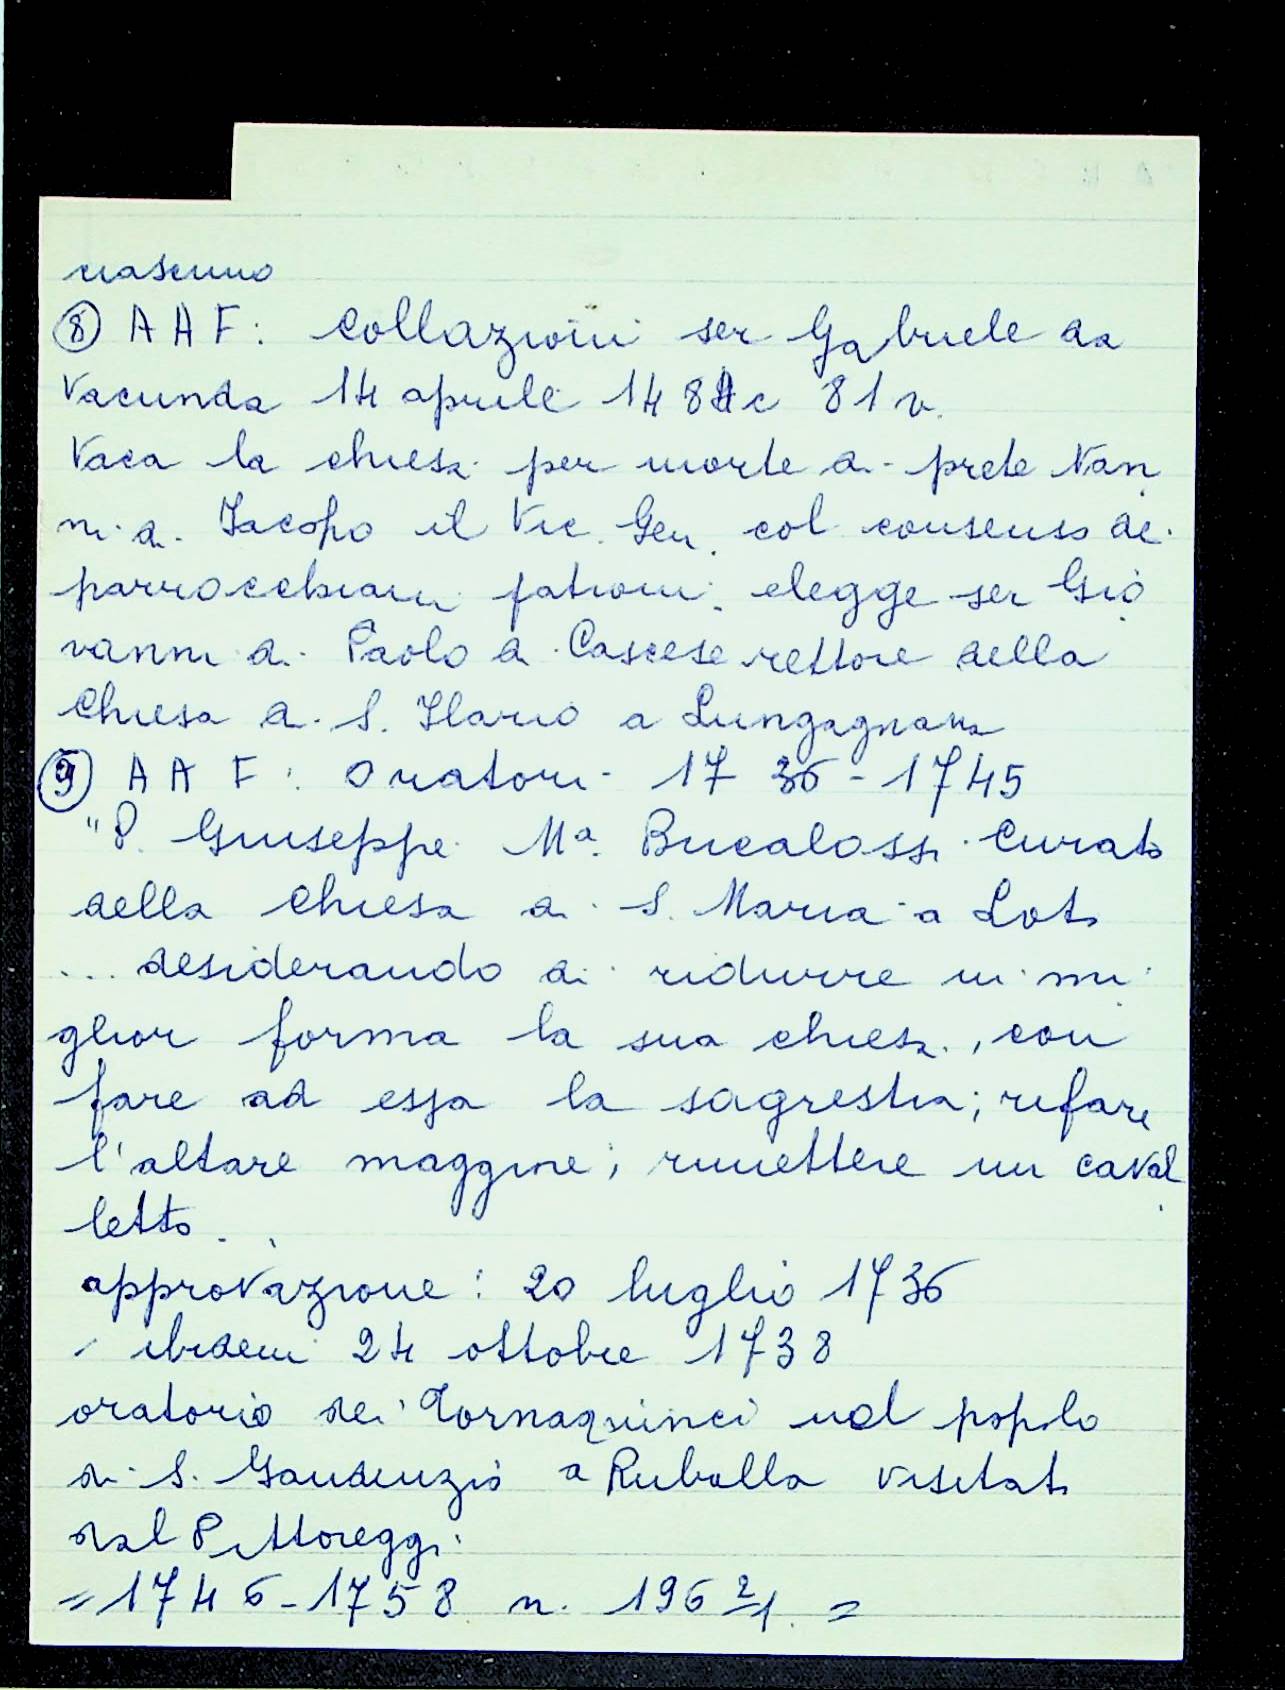 ciascuno
⑧ A A F: Collazioni ser Gabriele da
Vacunda 14 aprile 148 c 81 v.
Vaca la chiesa per morte di prete Nan
ni di Jacopo il Vic. Gen. col consenso dei
parrocchiani patroni. elegge ser Gio
vanni di Paolo da Cascese rettore della
Chiesa di S. Ilario a Lungagnana
⑨ A A F: Oratori 1736-1745
"P. Giuseppe Mª. Bucalossi Curato
della Chiesa di S. Maria a Loto
... desiderando di ridurre in mi
glior forma la sua chiesa, con
fare ad essa la sagrestia; rifare
l'altare maggiore; rimettere un caval
letto..
approvazione: 20 luglio 1736
- ibidem 24 ottobre 1738
oratorio dei Tornaquinci nel popolo
di S. Gaudenzio a Ruballa visitato
dal Pittoreggi
= 1746-1758 n. 196 2/1. =